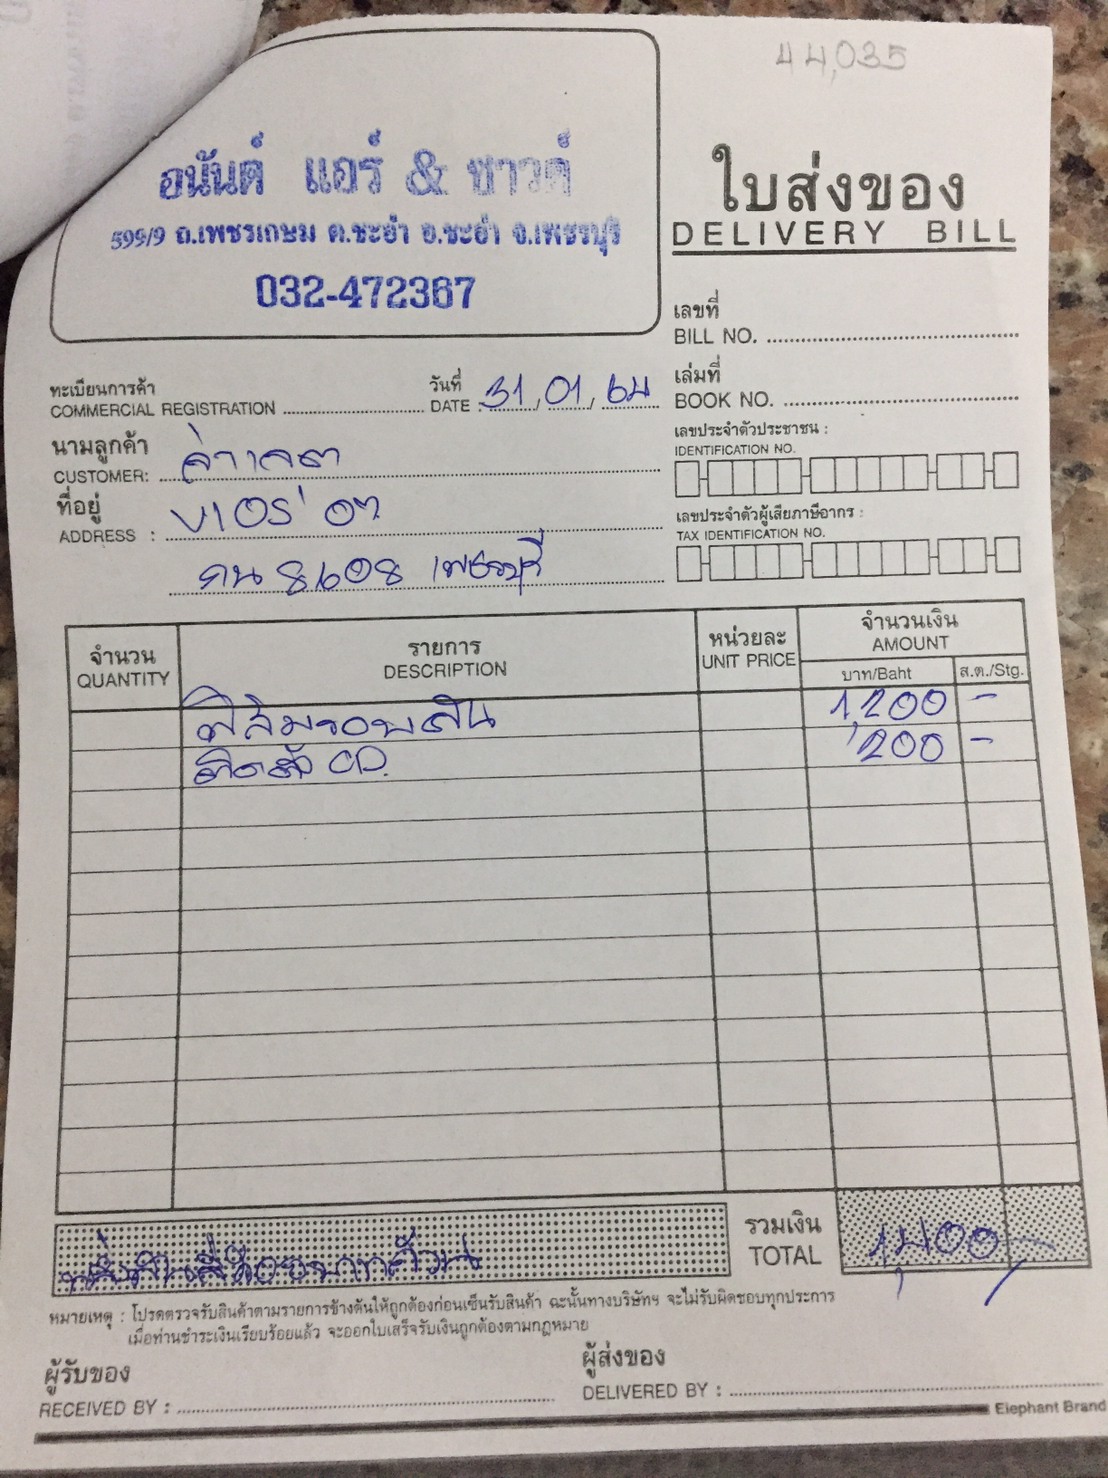 44,035
อนันต์ แอร์ & ซาวด์
599/9 ถ.เพชรเกษม ต.ชะอำ อ.ชะอำ จ.เพชรบุรี
032-472367
ใบส่งของ
DELIVERY BILL
เลขที่
BILL NO.
ทะเบียนการค้า
COMMERCIAL REGISTRATION
วันที่
DATE : 31, 01, 64
เล่มที่
BOOK NO.
นามลูกค้า
CUSTOMER:
เลขประจำตัวประชาชน :
IDENTIFICATION NO.
ที่อยู่
ADDRESS :
เลขประจำตัวผู้เสียภาษีอากร :
TAX IDENTIFICATION NO.
8608 เพชรบุรี
จำนวน
QUANTITY
รายการ
DESCRIPTION
หน่วยละ
UNIT PRICE
จำนวนเงิน
AMOUNT
บาท/Baht
ส.ต./Stg.
ฟิล์มรอบคัน 1,200 -
ติดตั้ง CD. 200 -
หนึ่งพันสี่ร้อยบาทถ้วน
รวมเงิน
TOTAL
1,400 -
หมายเหตุ : โปรดตรวจรับสินค้าตามรายการข้างต้นให้ถูกต้องก่อนเซ็นรับสินค้า ฉะนั้นทางบริษัทฯ จะไม่รับผิดชอบทุกประการ
เมื่อท่านชำระเงินเรียบร้อยแล้ว จะออกใบเสร็จรับเงินถูกต้องตามกฎหมาย
ผู้รับของ
RECEIVED BY :
ผู้ส่งของ
DELIVERED BY :
Elephant Brand